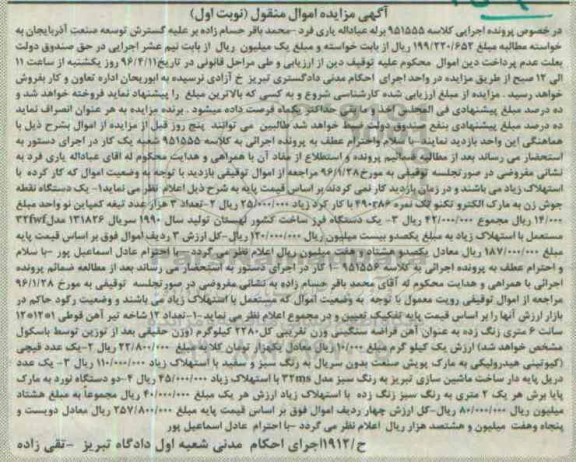 آگهی مزایده اموال منقول (نوبت اول)
در خصوص پرونده اجرایی کلاسه ۹۵۱۵۵۵ برله عباداله یاری فرد -محمد باقر حسام زاده بر علیه گسترش توسعه صنعت آذربایجان به
خواسته مطالبه مبلغ ۱۹۹/۲۲۰/۶۵۲ ریال از بابت خواسته و مبلغ یک میلیون ریال از بابت نیم عشر اجرایی در حق صندوق دولت
بعلت عدم پرداخت دین اموال محکوم علیه توقیف دین از ارزیابی و طی مراحل قانونی در تاریخ ۹۶/۴/۱۱ روز یکشنبه از ساعت ۱۱
الی ۱۲ صبح از طریق مزایده در واحد اجرای احکام مدنی دادگستری تبریز خ آزادی نرسیده به ابوریحان اداره تعاون و کار بفروش
خواهد رسید . مزایده از مبلغ ارزیابی شده کارشناسی شروع و به کسی که بالاترین مبلغ را پیشنهاد نماید فروخته خواهد شد و
ده درصد مبلغ پیشنهادی فی المجلس اخذ و مابقی حداکثر یکماه فرصت داده میشود . برنده مزایده به هر عنوان انصراف نماید
ده درصد مبلغ پیشنهادی بنفع صندوق دولت ضبط خواهد شد طالبین می توانند پنج روز قبل از مزایده از اموال بشرح ذیل با
هماهنگی این واحد بازدید نمایند. با سلام واحترام عطف به پرونده اجرائی به کلاسه ۹۵۱۵۵۵ شعبه یک کار در اجرای دستور به
استحضار می رساند بعد از مطالعه ضمائیم پرونده و استطلاع از مفاد آن با همراهی و هدایت محکوم له آقای عباداله یاری فرد به
نشانی مفروضی در صورتجلسه توقیفی به مورخ ۹۶/۱/۲۸ مراجعه از اموال توقیفی بازدید با توجه به وضعیت اموال که کار کرده با
استهلاک زیاد می باشند و در زمان بازدید کار نمی کردند بر اساس قیمت پایه به شرح ذیل اعلام نظر می نماید۱- یک دستگاه نقطه
جوش زن به مارک الکترو تکنو تک نمره ۴۹۰۳۸۶ با کار کرد زیاد ۲۵/۰۰۰/۰۰۰ ریال ۲-تعداد ۳ هزار عدد تیغه کمپاین نو واحد مبلغ
۱۴/۰۰۰ ریال مجموع ۴۲/۰۰۰/۰۰۰ ریال ۳- یک دستگاه فرز ساخت کشور لهستان تولید سال ۱۹۹۰ سریال ۱۳۱۸۲۶ مدل ۳۲fwf
مستعمل با استهلاک زیاد به مبلغ یکصدو بیست میلیون ریال ۱۲۰/۰۰۰/۰۰۰ ریال-کل ارزش ۳ ردیف اموال فوق بر اساس قیمت پایه
۱۸۷/۰۰۰/۰۰۰ ریال معادل یکصدو هشتاد و هفت میلیون ریال اعلام نظر می گردد با احترام عادل اسماعیل پور -با سلام
و احترام عطف به پرونده اجرائی به کلاسه ۹۵۱۵۵۶ -۱ کار در اجرای دستور به استحضار می رساند بعد از مطالعه ضمائم پرونده
اجرائی با همراهی و هدایت محکوم له آقای محمد باقر حسام زاده به نشانی مفروضی در صورتجلسه توقیفی به مورخ ۹۶/۱/۲۸
مراجعه از اموال توقیفی رویت معمول با توجه به وضعیت اموال که مستعمل با استهلاک زیاد می باشند و وضعیت رکود حاکم در
بازار ارزش آنها را بر اساس قیمت پایه تفکیک تعیین و در مجموع اعلام نظر می نماید -۱- تعداد ۱۲ شاخه تیر آهن قوطی ۱۲*۱۲
سانت ۶ متری زنگ زده به عنوان آهن قراضه سنگینی وزن تقریبی کل ۲۲۸۰ کیلوگرم (وزن حقیقی بعد از توزین توسط باسکول
مشخص خواهد شد) ارزش یک کیلو گرم مبلغ ۱۰/۰۰۰ ریال معادل یکهزار تومان کلا به مبلغ ۲۲/۸۰۰/۰۰۰ ریال ۲-یک عدد قیچی
(گیوتینی هیدرولیکی به مارک پویش صنعت بدون سریال به رنگ سبز و سفید با استهلاک زیاد ۱۱۰/۰۰۰/۰۰۰ ریال ۳- یک عدد
دریل پایه دار ساخت ماشین سازی تبریز به رنگ سبز مدل ۳۲ms با استهلاک زیاد ۴۵/۰۰۰/۰۰۰ ریال ۴-دو دستگاه نورد به مارک
پایا برش هر یک ۲ متری به رنگ سبز زنگ زده با استهلاک زیاد ارزش هر یک مبلغ ۴۰/۰۰۰/۰۰۰ ریال مجموعاً به مبلغ هشتاد
میلیون ریال ۸۰/۰۰۰/۰۰۰ ریال-کل ارزش چهار ردیف اموال فوق بر اساس قیمت پایه مبلغ ۲۵۷/۸۰۰/۰۰۰ ریال معادل دویست و
پنجاه وهفت میلیون و هشتصد هزار ریال اعلام نظر می گردد -با احترام عادل اسماعیل پور
ح/۱۹۱۲اجرای احکام مدنی شعبه اول دادگاه تبریز -تقی زاده